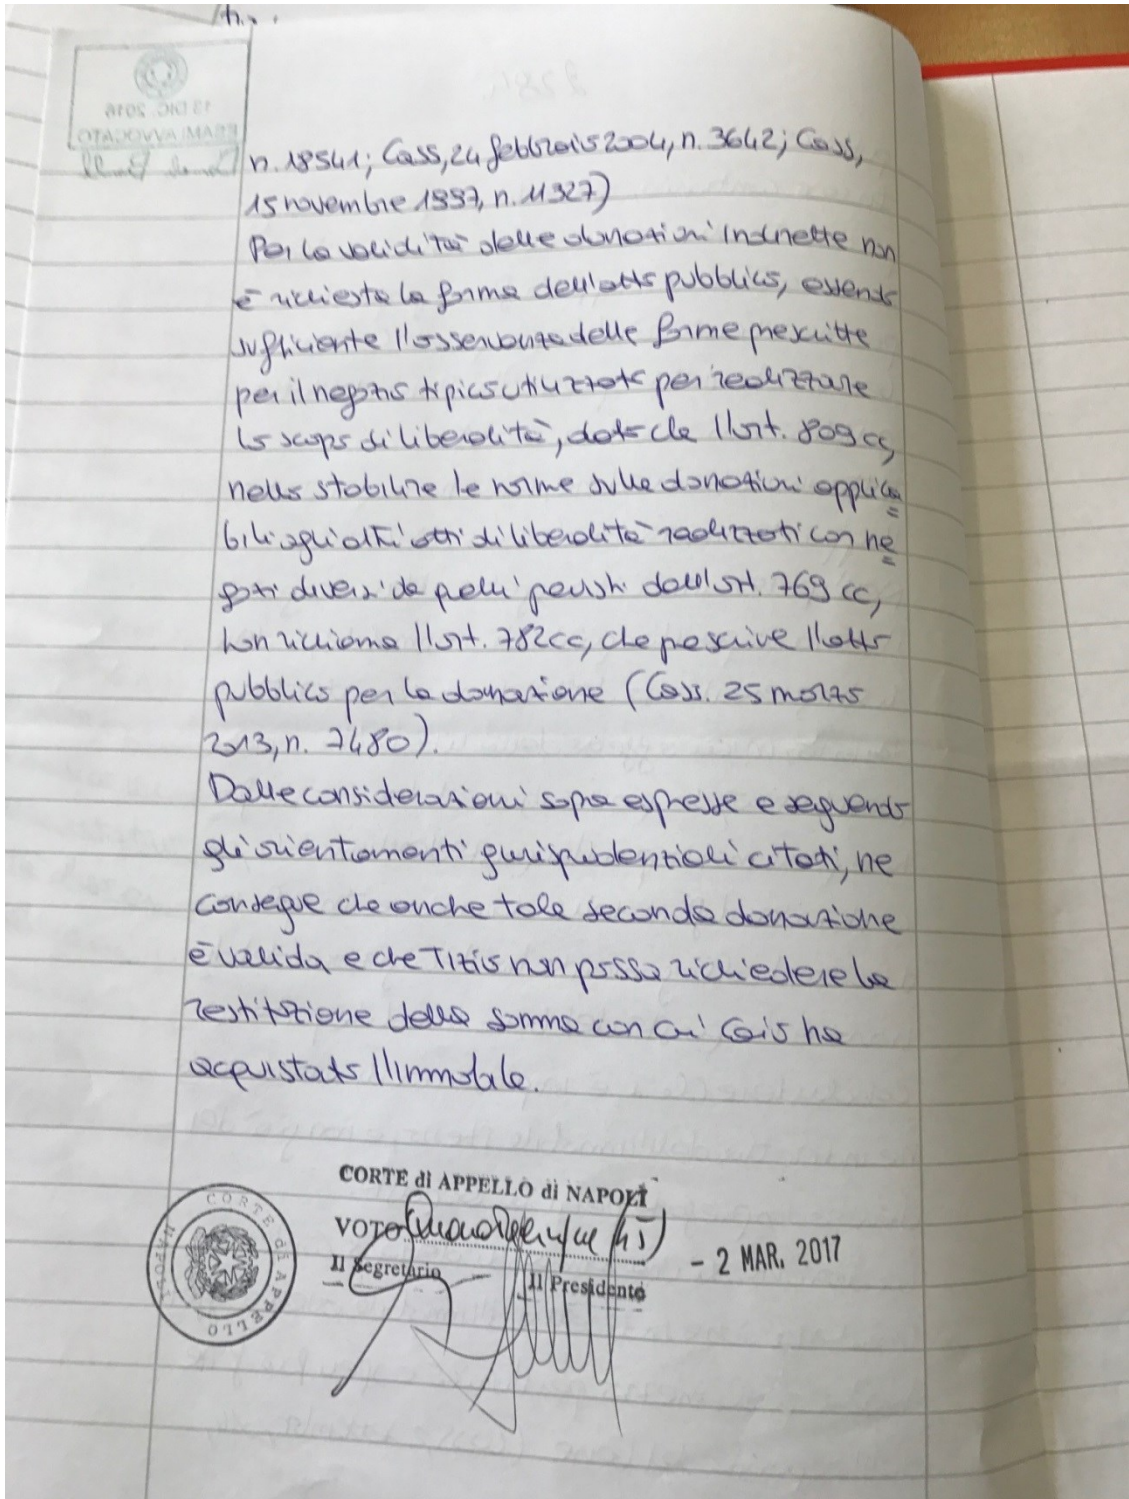 n. 18541; Cass, 24 febbraio 2004, n. 3642; Cass,
15 novembre 1997, n. 11327)
Per la validità delle donazioni indirette non
è richiesta la forma dell'atto pubblico, essendo
sufficiente l'osservanza delle forme prescritte
per il negozio tipico utilizzato per realizzare
lo scopo di liberalità, dato che l'art. 809 cc,
nello stabilire le norme sulle donazioni applica
bili agli altri atti di liberalità realizzati con ne
gozi diversi da quelli previsti dall'art. 769 cc,
non richiama l'art. 782 cc, che prescrive l'atto
pubblico per la donazione (Cass. 25 marzo
2013, n. 7480).
Dalle considerazioni sopra espresse e seguendo
gli orientamenti giurisprudenziali citati, ne
consegue che anche tale seconda donazione
è valida e che Tizio non possa richiedere la
restituzione della somma con cui Caio ha
acquistato l'immobile.
CORTE di APPELLO di NAPOLI
VOTO
Il Segretario Il Presidente
- 2 MAR. 2017
CORTE di APPELLO
NAPOLI
13 DIC. 2016
ESAMI AVVOCATO